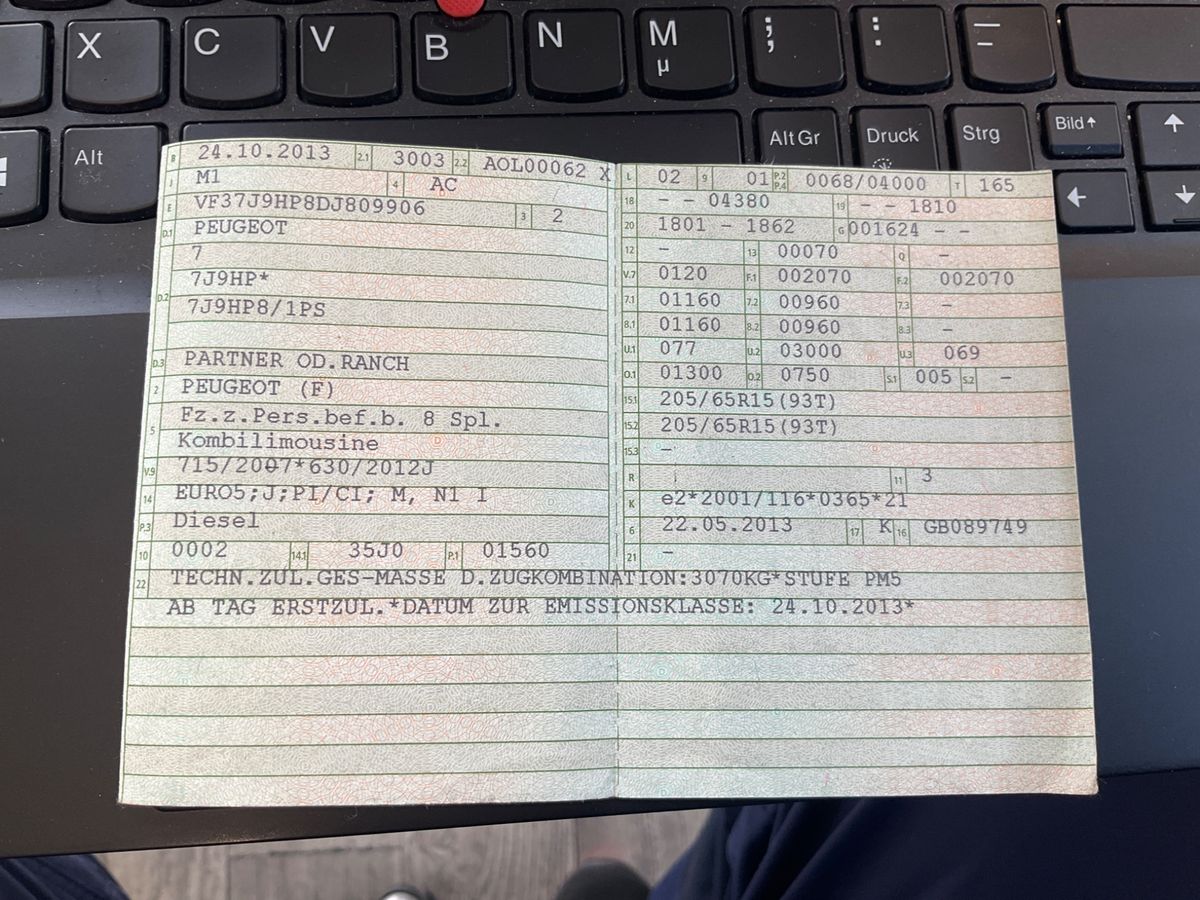 X C V B N M ; : _
µ , . -
Alt Alt Gr Druck Strg Bild ↑ ↑
← ↓
B 24.10.2013 2.1 3003 2.2 AOL00062 X
J M1 4 AC
E VF37J9HP8DJ809906 3 2
D.1 PEUGEOT
7
D.2 7J9HP*
7J9HP8/1PS
D.3 PARTNER OD.RANCH
2 PEUGEOT (F)
5 Fz.z.Pers.bef.b. 8 Spl.
Kombilimousine
V.9 715/2007*630/2012J
14 EURO5;J;PI/CI; M, N1 I
P.3 Diesel
10 0002 14.1 35J0 P.1 01560
L 02 9 01 P.2 P.4 0068/04000 T 165
18 - - 04380 19 - - 1810
20 1801 - 1862 G 001624 - -
12 - 13 00070 Q -
V.7 0120 F.1 002070 F.2 002070
7.1 01160 7.2 00960 7.3 -
8.1 01160 8.2 00960 8.3 -
U.1 077 U.2 03000 U.3 069
O.1 01300 O.2 0750 S.1 005 S.2 -
15.1 205/65R15(93T)
15.2 205/65R15(93T)
15.3 -
R 11 3
K e2*2001/116*0365*21
6 22.05.2013 17 K 16 GB089749
21 -
22 TECHN.ZUL.GES-MASSE D.ZUGKOMBINATION:3070KG*STUFE PM5
AB TAG ERSTZUL.*DATUM ZUR EMISSIONSKLASSE: 24.10.2013*